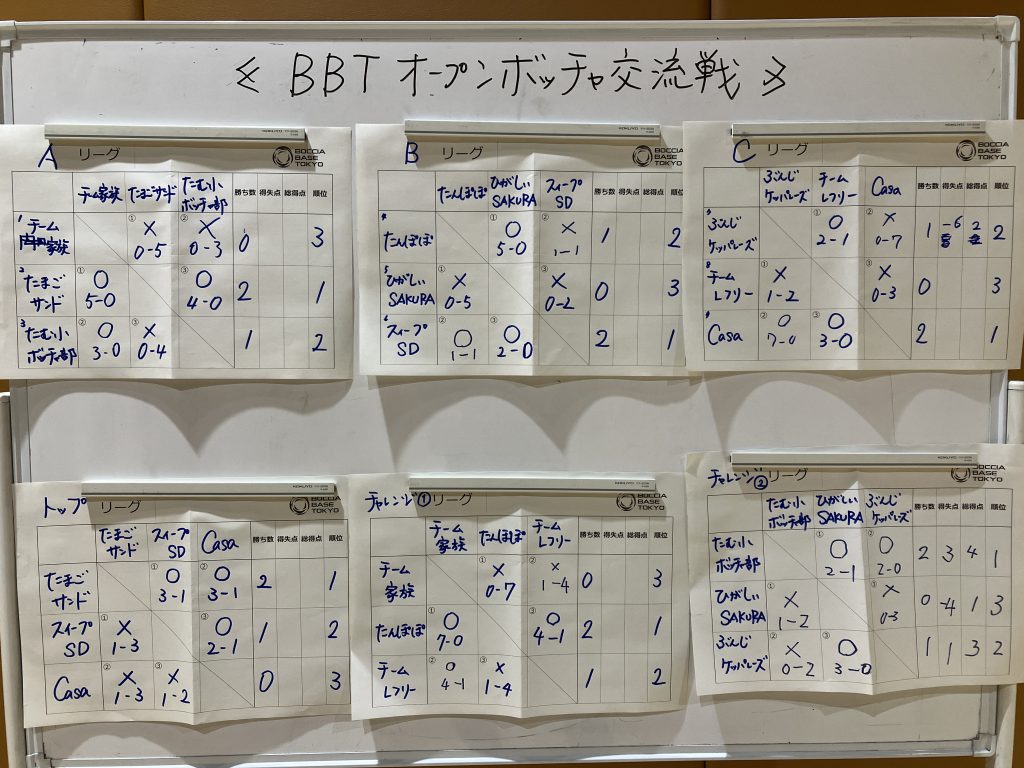 ≪ BBT オープンボッチャ交流戦 ≫
A リーグ BOCCIA BASE TOKYO
チーム家族 たまごサンド たむ小ボッチャ部 勝ち数 得失点 総得点 順位
1 チーム家族 ① × 0-5 ② × 0-3 0 3
2 たまごサンド ① ○ 5-0 ③ ○ 4-0 2 1
3 たむ小ボッチャ部 ② ○ 3-0 ③ × 0-4 1 2
B リーグ BOCCIA BASE TOKYO
たんぽぽ ひがしいSAKURA スィープSD 勝ち数 得失点 総得点 順位
4 たんぽぽ ① ○ 5-0 ② × 1-1 1 2
5 ひがしいSAKURA ① × 0-5 ③ × 0-2 0 3
6 スィープSD ② ○ 1-1 ③ ○ 2-0 2 1
C リーグ BOCCIA BASE TOKYO
ぶんじケッパレーズ チームレフリー Casa 勝ち数 得失点 総得点 順位
ぶんじケッパレーズ ① ○ 2-1 ② × 0-7 1 -6 2 2
8 チームレフリー ① × 1-2 ③ × 0-3 0 3
9 Casa ② ○ 7-0 ③ ○ 3-0 2 1
トップ リーグ BOCCIA BASE TOKYO
たまごサンド スィープSD Casa 勝ち数 得失点 総得点 順位
たまごサンド ① ○ 3-1 ② ○ 3-1 2 1
スィープSD ① × 1-3 ③ ○ 2-1 1 2
Casa ② × 1-3 ③ × 1-2 0 3
チャレンジ① リーグ BOCCIA BASE TOKYO
チーム家族 たんぽぽ チームレフリー 勝ち数 得失点 総得点 順位
チーム家族 ① × 0-7 ② × 1-4 0 3
たんぽぽ ① ○ 7-0 ③ ○ 4-1 2 1
チームレフリー ② ○ 4-1 ③ × 1-4 1 2
チャレンジ② リーグ BOCCIA BASE TOKYO
たむ小ボッチャ部 ひがしいSAKURA ぶんじケッパレーズ 勝ち数 得失点 総得点 順位
たむ小ボッチャ部 ① ○ 2-1 ② ○ 2-0 2 3 4 1
ひがしいSAKURA ① × 1-2 ③ × 0-3 0 -4 1 3
ぶんじケッパレーズ ② × 0-2 ③ ○ 3-0 1 1 3 2